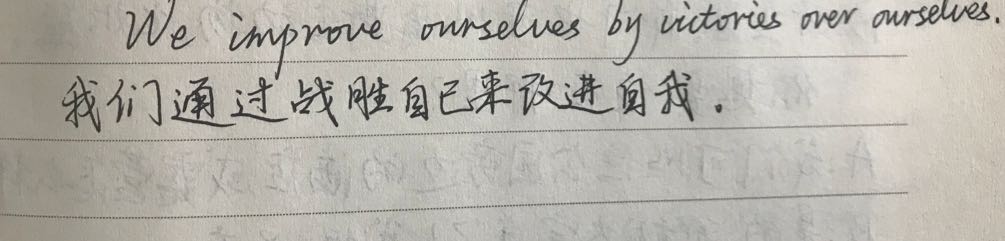 We improve ourselves by victories over ourselves.
我们通过战胜自己来改进自我.